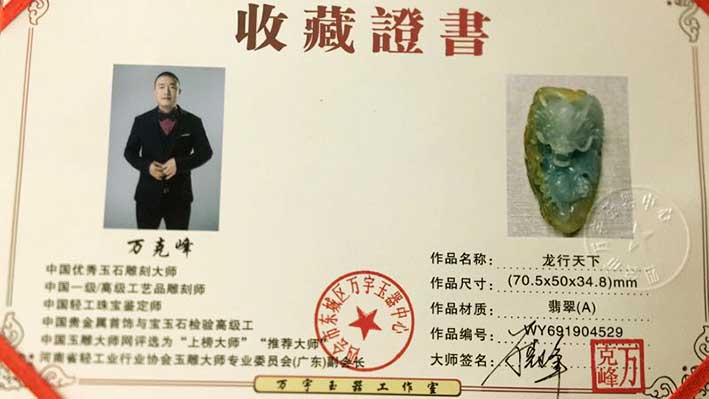 收藏證書
万克峰
中国优秀玉石雕刻大师
中国一级/高级工艺品雕刻师
中国轻工珠宝鉴定师
中国贵金属首饰与宝玉石检验高级工
中国玉雕大师网评选为“上榜大师”“推荐大师”
河南省轻工业行业协会玉雕大师专业委员会(广东)副会长
作品名称: 龙行天下
作品尺寸: (70.5x50x34.8)mm
作品材质: 翡翠(A)
作品编号: WY691904529
大师签名: 万克峰
万克峰
四会市东城区万字玉器中心
万字玉器工作室